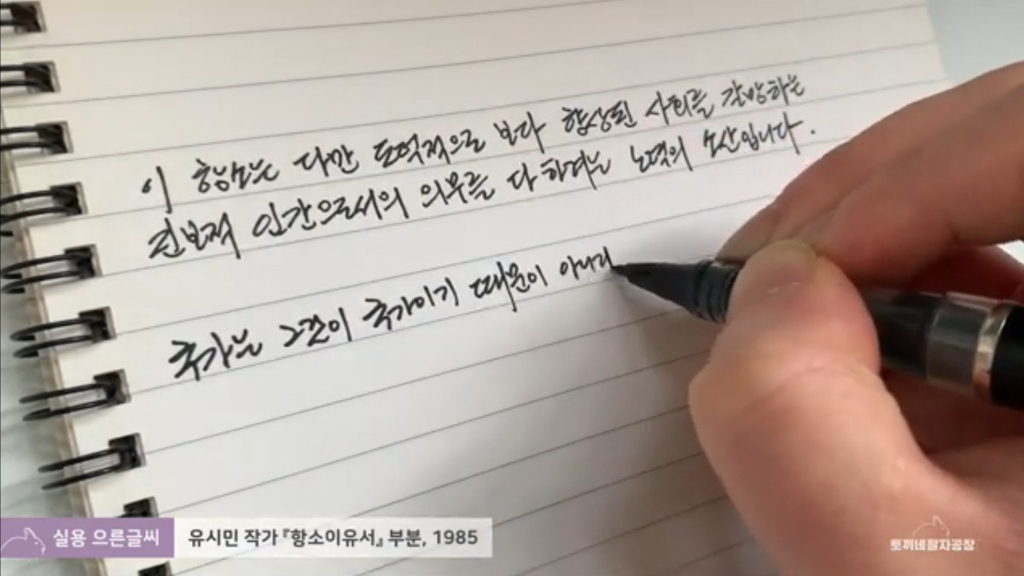 이 항소는 다만 도덕적으로 보다 향상된 사회를 갈망하는
진보적 인간으로서의 의무를 다 하려는 노력의 소산입니다.
국가는 그것이 국가이기 때문이 아니라
실용 으른글씨
유시민 작가 『항소이유서』 부분, 1985
토끼네활자공장